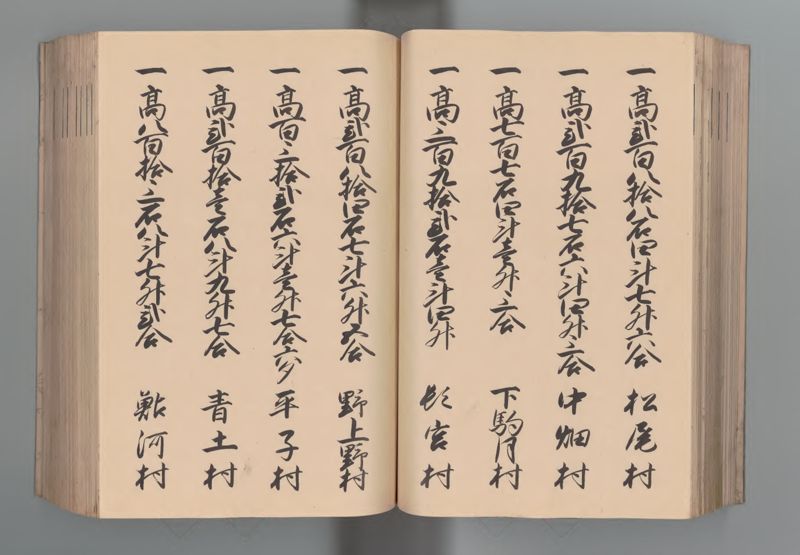 一高弐百八拾八石四斗七升六合 松尾村
一高弐百九拾七石六斗四升三合 中畑村
一高七百七石四斗壱升三合 下駒月村
一高三百九拾弐石壱斗四升 宮村
一高弐百八拾四石七斗六升五合 野上野村
一高百三拾弐石六斗壱升七合六夕 平子村
一高弐百拾壱石八斗九升七合 青土村
一高八百拾三石八斗七升弐合 鮎河村